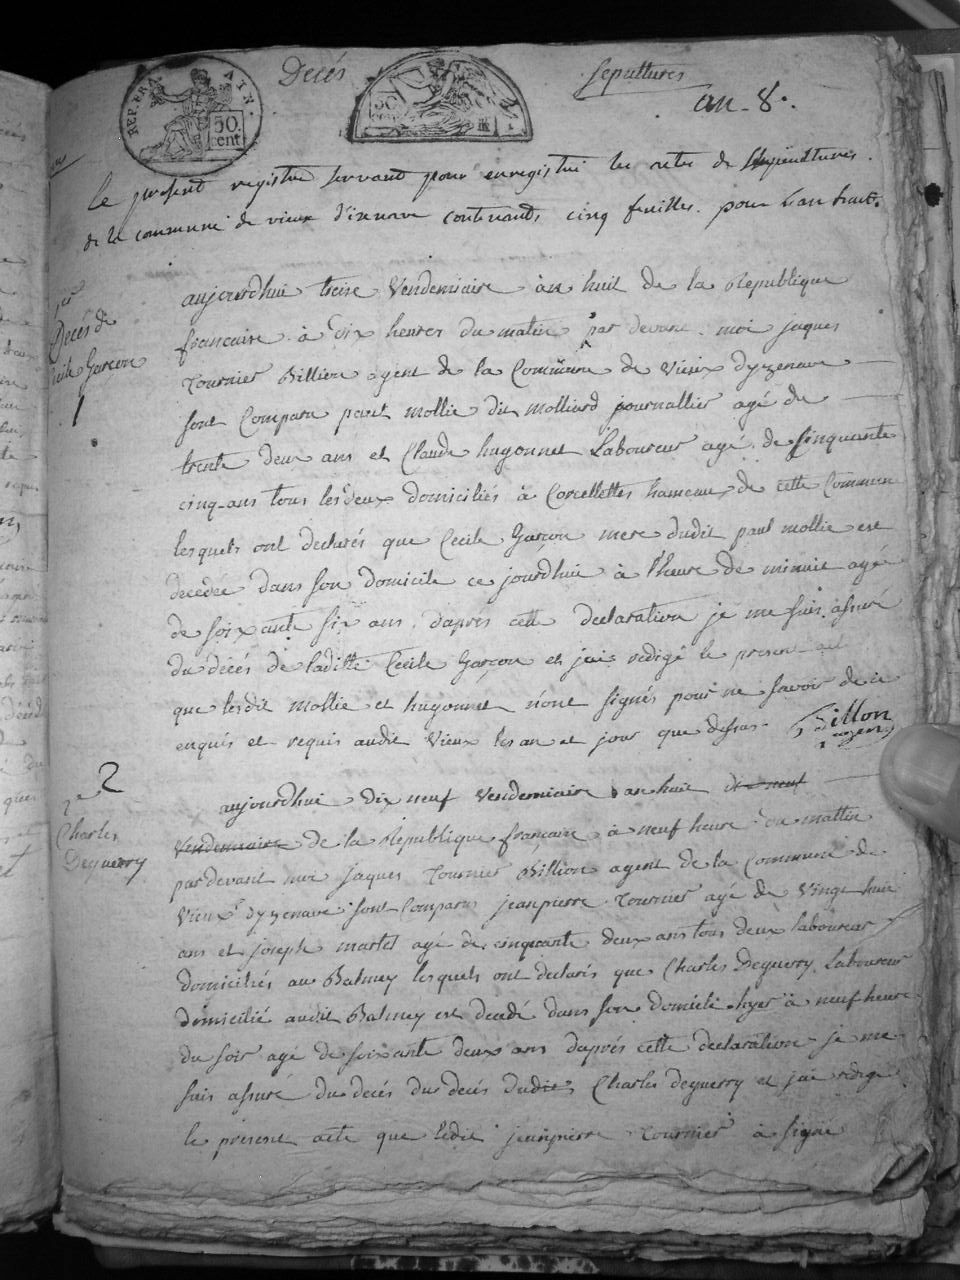 Decés
Sepultures
an - 8e.
REP. FRA. AIN.
50. cent
Le present registre servant pour enregistri les actes de sepulctures.
de la commune de vieux d'izenave contenants cinq feuilles. pour L'an huit.
1er
Décès de
Cecile Garçon
1
aujourdhui treise Vendemiaire an huit de la Republique
francaise à dix heures du matin par devant moi jaques
Tournier Billion agent de la Commune de Vieux dyzenave
sont Comparu paul mollie dit molliard journallier agé de
trente deux ans et Claude hugonnet Laboureur agé de Cinquante
cinq ans tous les deux domiciliés à Corcellettes hameau de cette Commune
lesquels ont declarés que Cecile Garçon mere dudit paul mollie est
decedée dans son domicile ce jourdhui à l'heure de minuit agé
de soixante six ans. daprés cette declaration je me suis assuré
du décés de laditte Cecile Garçon et jais redigé le present
que lesdit mollie et hugonnet n'ont signés pour ne savoir de ce
enquis et requis audit Vieux les an et jour que dessus. Billon
agent
2e
2
Charles
Deguerry
aujourdhui dix neuf Vendemiaire an huit dix neuf
Vendemiaire de la Republique française à neuf heure du mattin
pardevant moi jaques Tournier Billion agent de la Commune de
Vieux dyzenave sont Comparus jeanpierre Tournier agé de Vingt huit
ans et joseph martel agé de cinquante deux ans tous deux laboureur
domiciliés au Balmey lesquels ont declarés que Charles Deguerry Laboureur
domicilié audit Balmey est decedé dans son domicile hyer à neuf heure
du soir agé de soixante deux ans daprés cette declaration je me
suis assuré du decés du decés dudit Charles deguerry et jai redigé
le present acte que ledit jeanpierre Tournier à signé